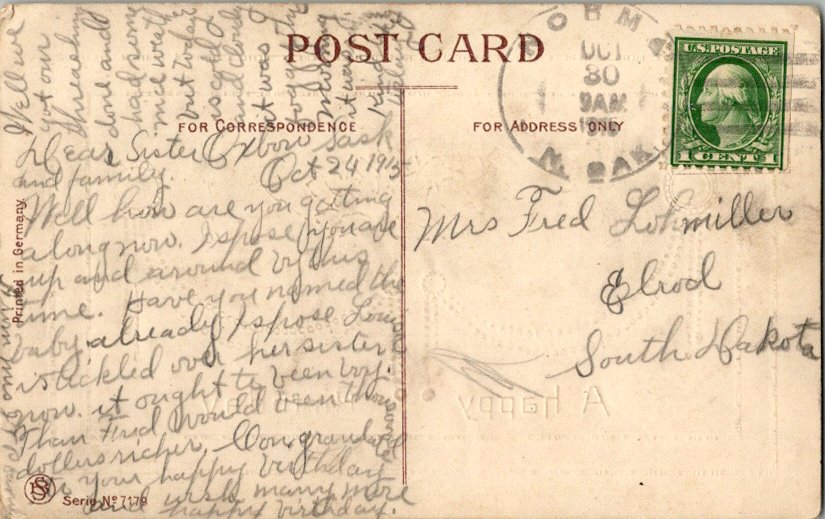 POST CARD
FOR CORRESPONDENCE
FOR ADDRESS ONLY
Dear Sister Oxbow Sask
and family. Oct 24 1915
Well how are you getting
along now. I spose you are
up and around by this
time. Have you named the
baby already I spose Louise
is tickled over her sister
now. it ought to been boy.
Than Fred would been thousand
dollers richer. Congradulate
your happy birthday
and wish many more
happy birthday.
Well we
got our
threashing
done and
had some
nice weth
but today
is cold
and cloudy
it was
foggy
morning
Printed in Germany
Serie No 7179
OCT
30
9AM
N. DAK
U.S. POSTAGE
1 CENT 1
Mrs Fred Lohmiller
Elrod
South Dakota
A happy